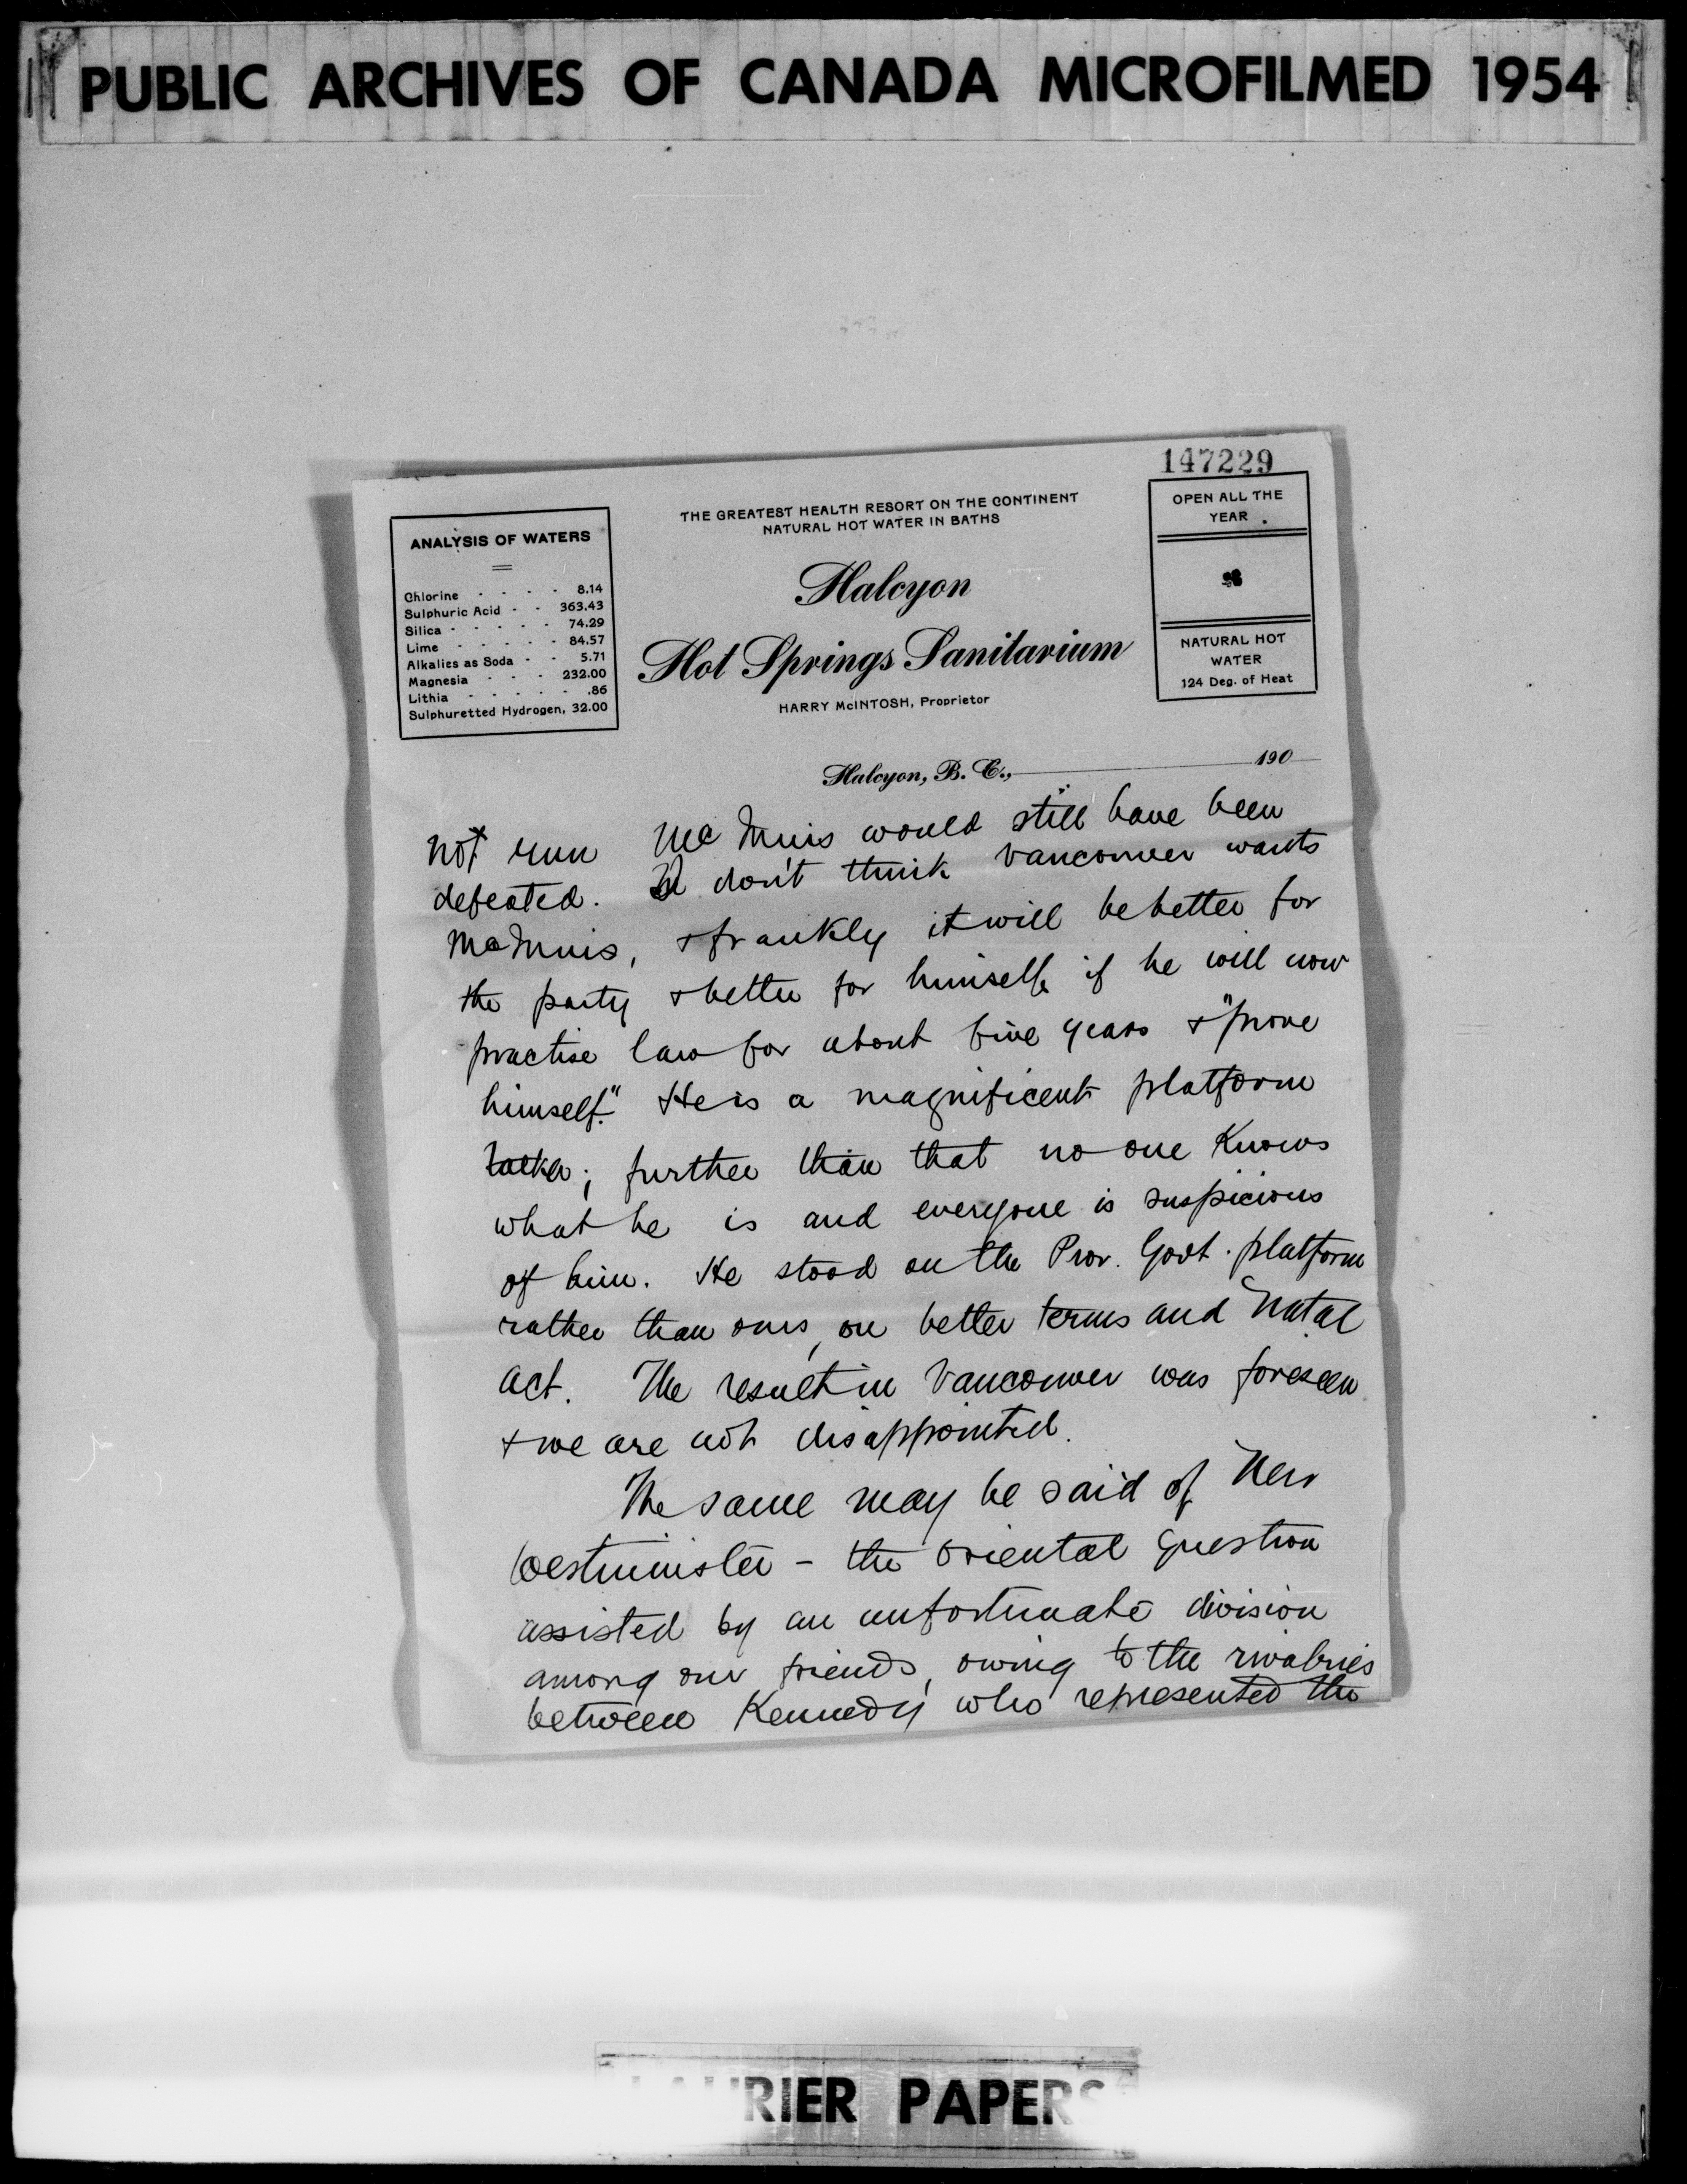 PUBLIC ARCHIVES OF CANADA MICROFILMED 1954
147229
ANALYSIS OF WATERS
Chlorine - - - - 8.14
Sulphuric Acid - - 363.43
Silica - - - - - 74.29
Lime - - - - - 84.57
Alkalies as Soda - - 5.71
Magnesia - - - 232.00
Lithia - - - - - .86
Sulphuretted Hydrogen, 32.00
THE GREATEST HEALTH RESORT ON THE CONTINENT
NATURAL HOT WATER IN BATHS
Halcyon
Hot Springs Sanitarium
HARRY McINTOSH, Proprietor
OPEN ALL THE
YEAR
NATURAL HOT
WATER
124 Deg. of Heat
Halcyon, B. C., 190
not run McInnis would still have been
defeated. I don't think Vancouver wants
McInnis, & frankly it will be better for
the party & better for himself if he will now
practise law for about five years & "prove
himself." He is a magnificent platform
talker; further than that no one knows
what he is and everyone is suspicious
of him. He stood on the Prov. Govt. platform
rather than ours, on better terms and Natal
Act. The result in Vancouver was foreseen
& we are not disappointed.
The same may be said of New
Westminster - the Oriental question
assisted by an unfortunate division
among our friends, owing to the rivalries
between Kennedy who represented the
LAURIER PAPERS